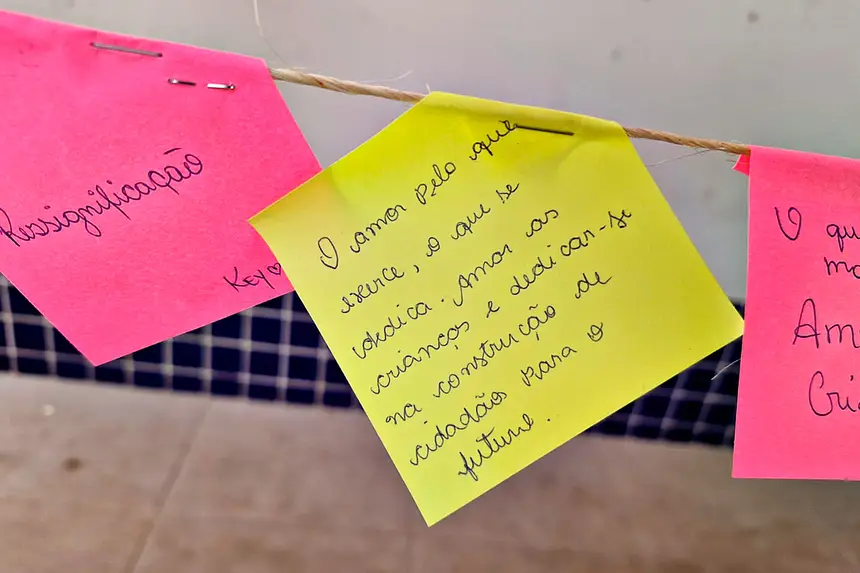 Ressignificação
Key♡
O amor pelo que
exerce, o que se
dedica. Amor as
crianças e dedicar-se
na construção de
cidadãos para o
future.
O qu
mo
Am
Cri